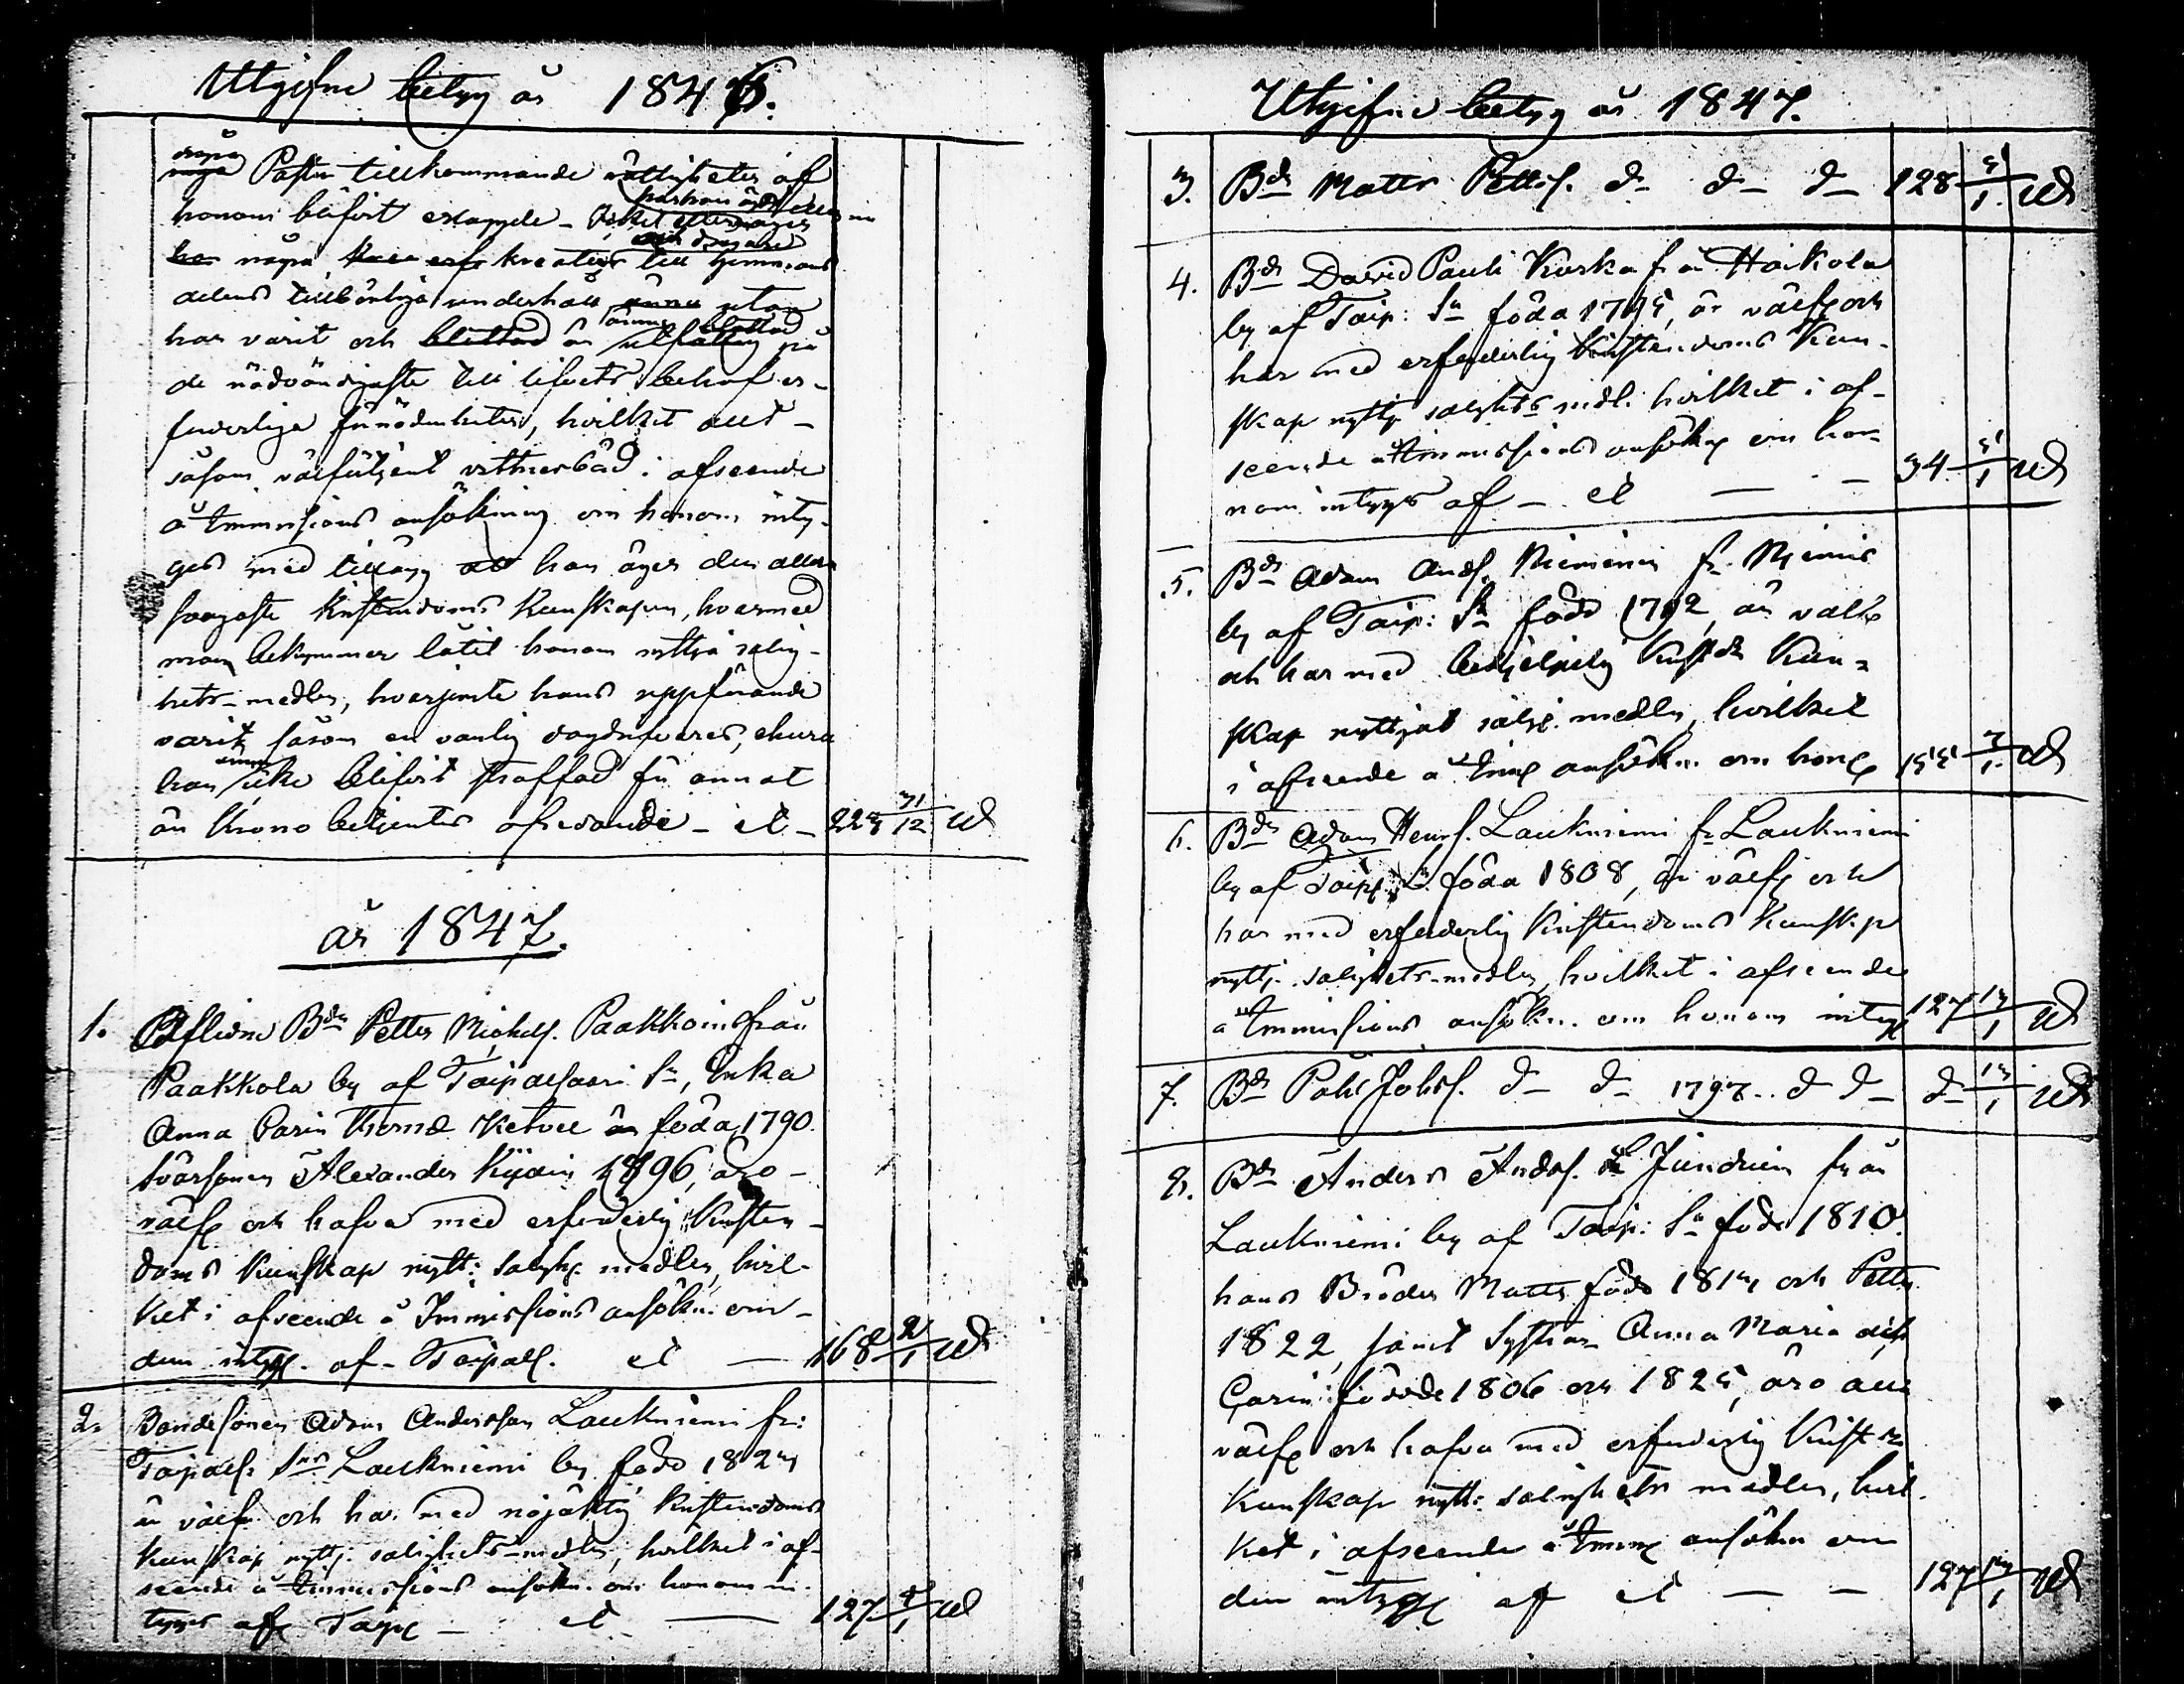 Utgifne betyg år 1846.
några Pastor tillkommande rättigheter af
honom blifvit
några kreatur till hemmans
delens tillbörliga underhåll utan
har varit och är ännu utfattig på
de nödvändigaste till lifvets behof er-
forderliga förnödenheter, hvilket allt
såsom välförtjent vittnesbörd i afseende
å Immissions ansökning om honom inty-
gas med tillägg att han äger den allra
svagaste Kristendoms Kunskapen, hvarmed
man bekymmer låtit honom nyttja salig-
hets-medlen, hvarjemte hans uppförande
varit såsom en vanlig ehuru
han icke blifvit straffad för annat
än Krono betjentes - et - 31/12 ut
år 1847.
1. Aflidne Bdn Petter Michelss. Paakkoins från
Paakkola by af Taipalsaari Sn, Enka
Anna Carin född 1790.
Svärsonen Alexander 1896, äro
välf. och hafva med erforderlig Kristen-
doms Kunskap nytt: salighs. medlen, hvil-
ket i afseende å Immissions ansökn. om
dem intyg. af Taipals. et — 168 2/1 ut
2. Bondesonen Adam Andersson Laukniemi fr:
Taipals: Sns Laukniemi by född
är välfr. och har med nöjaktig Kristendoms
Kunskap nyttj. salighets-medlen, hvilket i af-
seende å Immissions ansökn. om honom in-
tygas af Taip. — et — 127 ut
Utgifne betyg år 1847.
3. Bdn Matts Petterss. d— d— d— 128 5/1 ut
4. Bdn David Pauli från Haikola
by af Taip: Sn född 1795, är välfr. och
har med erforderlig Kristendoms Kun-
skap nyttj. salighets medl. hvilket i af-
seende å Immissions ansökng om ho-
nom intygs af — et — — 34 5/1 ut
5. Bdn Adam Ands. Nieminen fr. Niemis
by af Taip: Sn född 1792, är välfr.
och har med behjelplig Krist.ds Kun-
skap nyttjat salig. medlen, hvilket
i afseende å Imm. ansökn. om honom 155 7/1 ut
6. Bdn Adam Henrs. Laukniemi fr. Laukniemi
by af Taip. Sn född 1808, är välfr. och
har med erforderlig Kristendoms Kunskap
nyttj. salighets-medlen, hvilket i afseende
å Immissions ansökn. om honom intyg. 127 13/1 ut
7. Bdn Påhl Johss. d— d— 1797. d d— d— 13/1 ut
8. Bdn Anders Andss. från
Laukniemi by af Taip: Sn född 1810.
hans Bröder Matts född och Petter
1822, samt Systrar Anna Maria och
Carin: födde 1806 och 1825, äro alla
välfr. och hafva med erforderlig Krist.ds
Kunskap nytt: salighets medlen, hvil-
ket i afseende å Imm. ansökn om
dem intyg. af et — — 127 ut